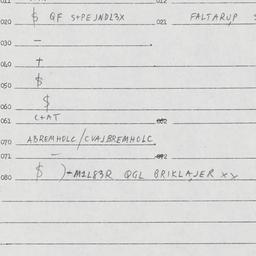 020 $ QF S+PEJNDL3X 021 FALTARUP
030 -
040 +
050 $
060 $
061 C+AT 062
070 ABREMHOLC/CVAJBREMHOLC
071 - 072
080 $ )+M1L83R QGL BRIKLAJER XX